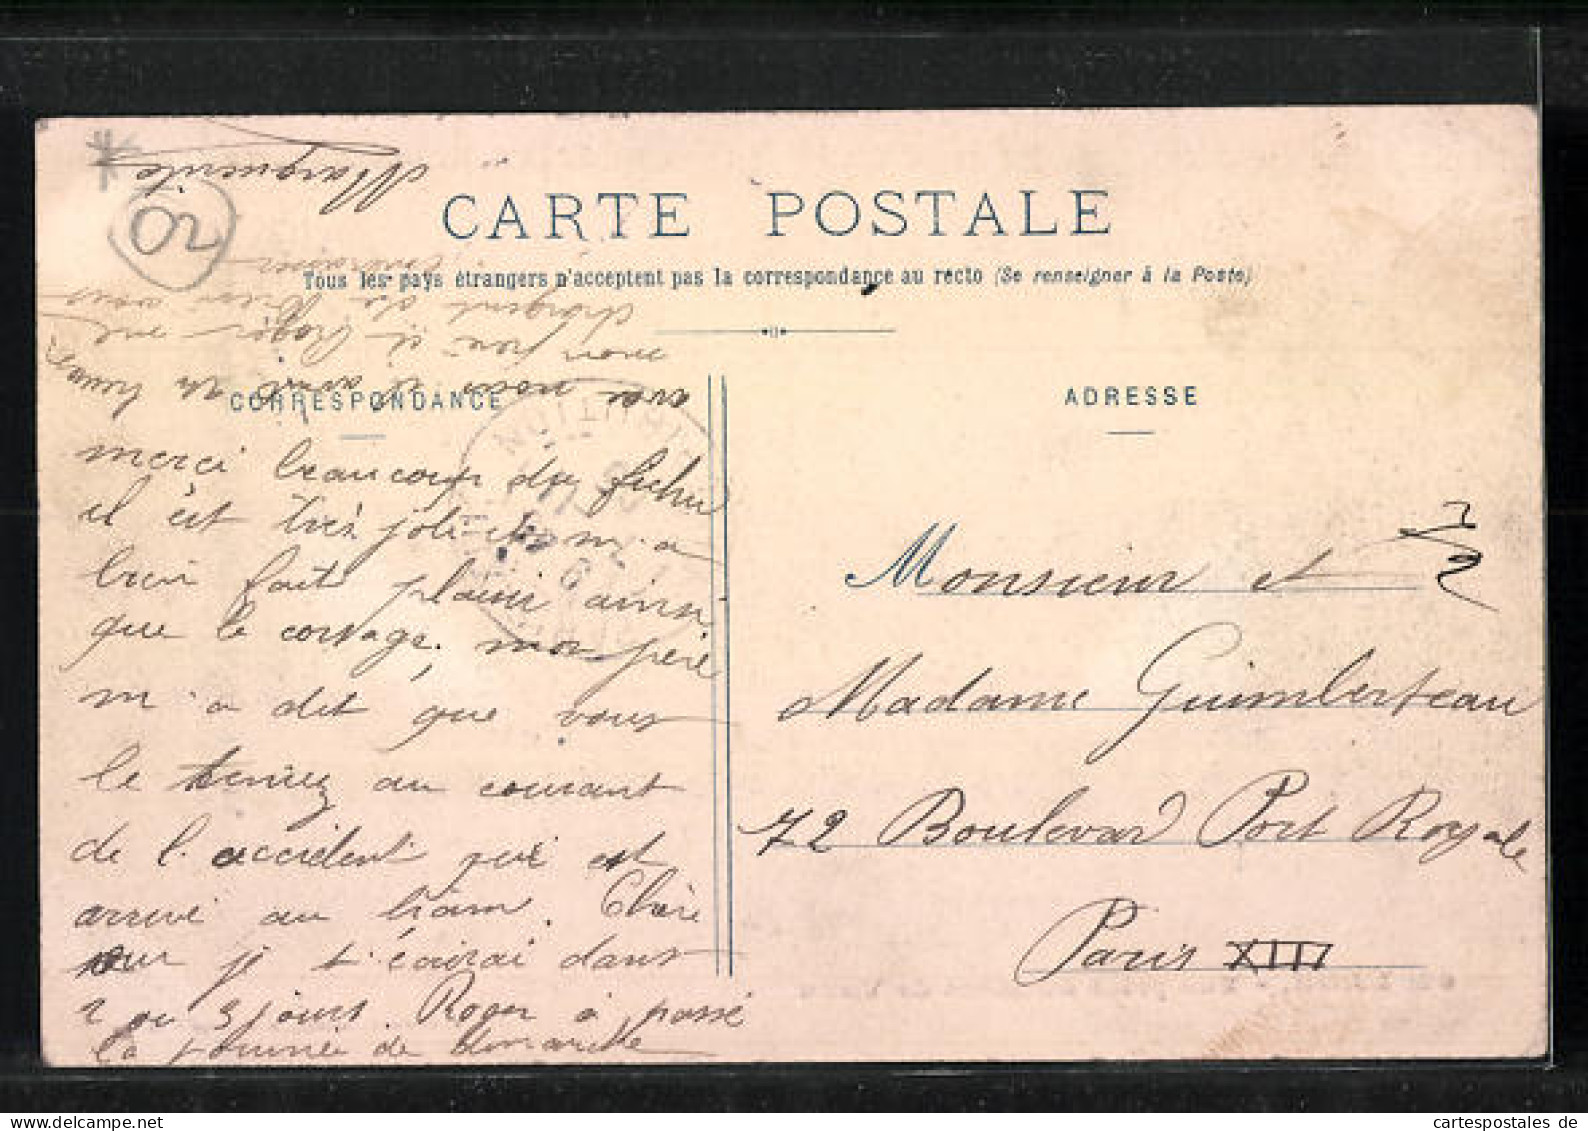 CARTE POSTALE
Tous les pays étrangers n'acceptent pas la correspondance au recto (Se renseigner à la Poste)
CORRESPONDANCE
ADRESSE
merci beaucoup du fichu
il est très joli m'a
bien fait plaisir ainsi
que le corsage, mon père
m'a dit que vous
le teniez au courant
de l'accident qui est
arrivé au tram. Chère
sœur je t'écrirai dans
2 ou 3 jours. Roger a passé
la journée de dimanche
avec nous et
mon père et Roger me
chargent de bien vous
embrasser
Marguerite
02
Monsieur et
Madame Guimberteau
72 Boulevard Port Royale
Paris XIII
cartespostales de